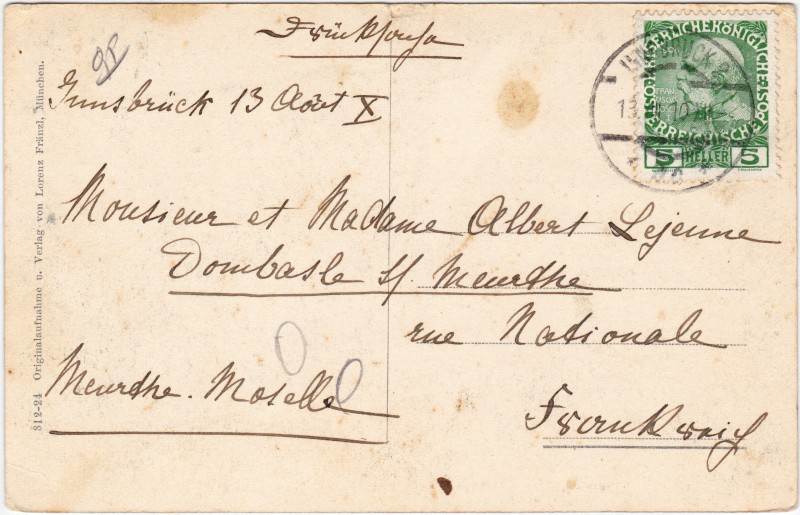 Drucksache
Innsbrück 13 Août X
Monsieur et Madame Albert Lejeune
Dombasle s/ Meurthe
rue Nationale
Meurthe-Moselle
Frankreich
312-24 Originalaufnahme u. Verlag von Lorenz Fränzl, München.
KAISERLICHE KÖNIGLICHE ÖSTERREICHISCHE POST
5 HELLER 5
INNSBRUCK